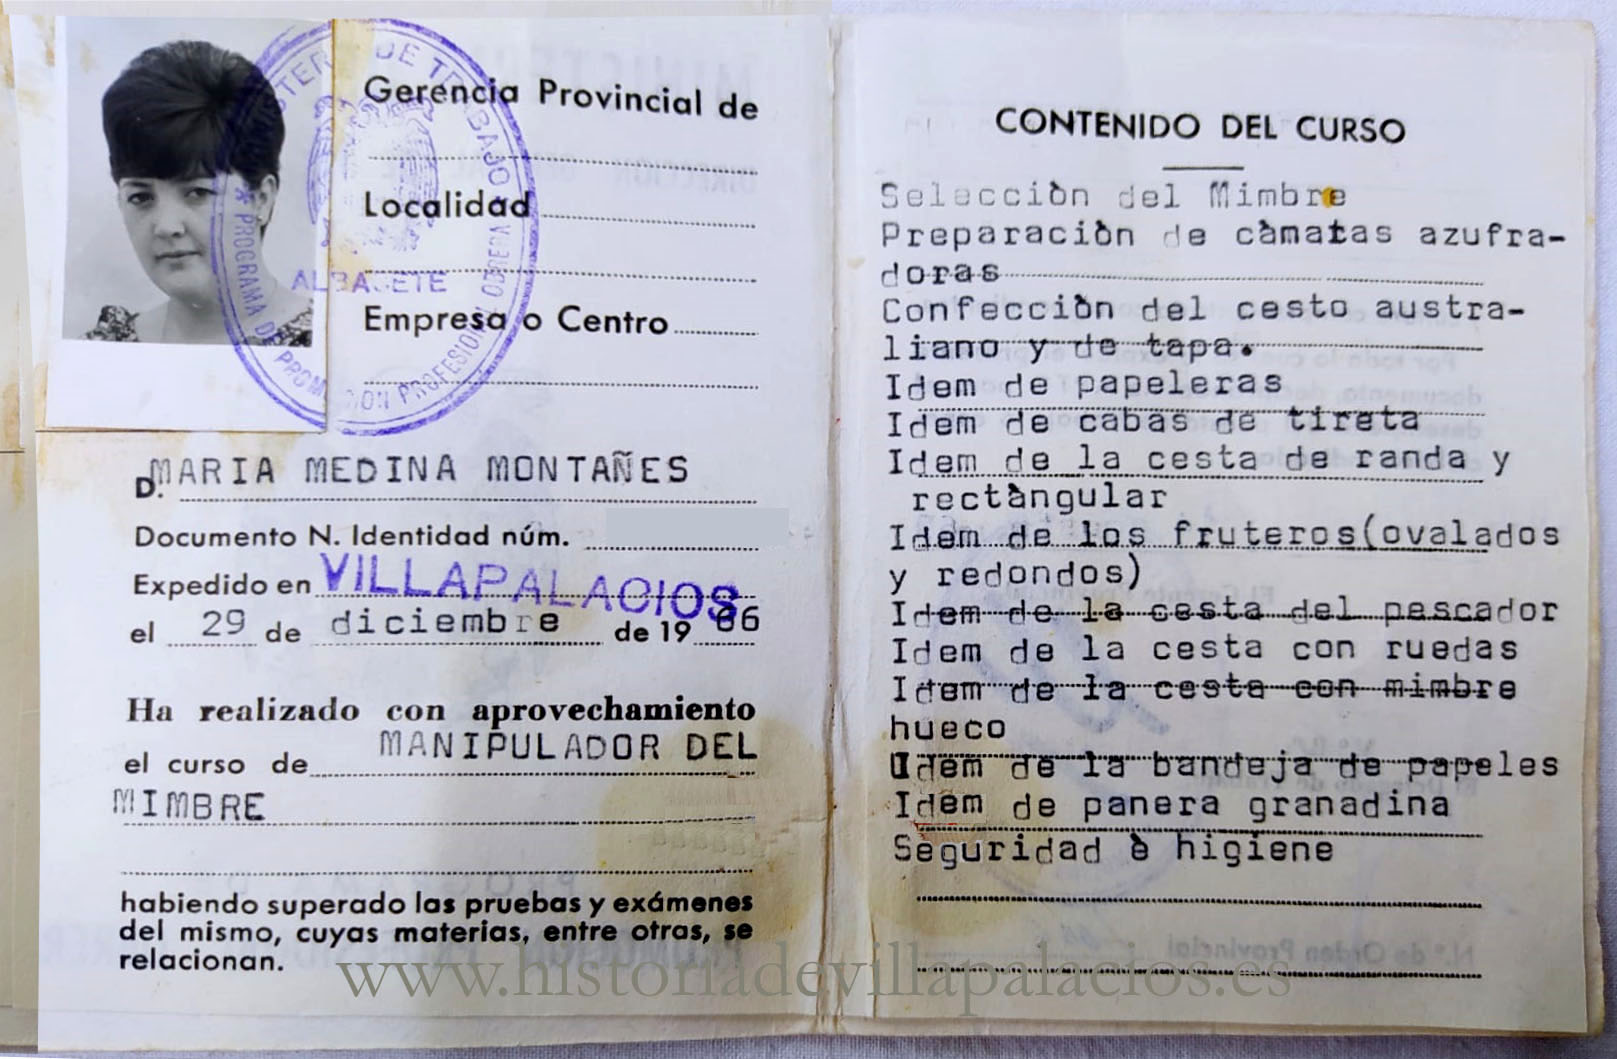 Gerencia Provincial de
Localidad
Empresa o Centro
MINISTERIO DE TRABAJO
ALBACETE
* PROGRAMA DE PROMOCION PROFESIONAL OBRERA
D. MARIA MEDINA MONTAÑES
Documento N. Identidad núm.
Expedido en VILLAPALACIOS
el 29 de diciembre de 19 66
Ha realizado con aprovechamiento
el curso de MANIPULADOR DEL
MIMBRE
habiendo superado las pruebas y exámenes
del mismo, cuyas materias, entre otras, se
relacionan.
CONTENIDO DEL CURSO
Selecciòn del Mimbre
Preparaciòn de càmatas azufra-
doras
Confecciòn del cesto austra-
liano y de tapa.
Idem de papeleras
Idem de cabas de tireta
Idem de la cesta de randa y
rectàngular
Idem de los fruteros(ovalados
y redondos)
Idem de la cesta del pescador
Idem de la cesta con ruedas
Idem de la cesta con mimbre
hueco
Idem de la bandeja de papeles
Idem de panera granadina
Seguridad è higiene
www.historiadevillapalacios.es